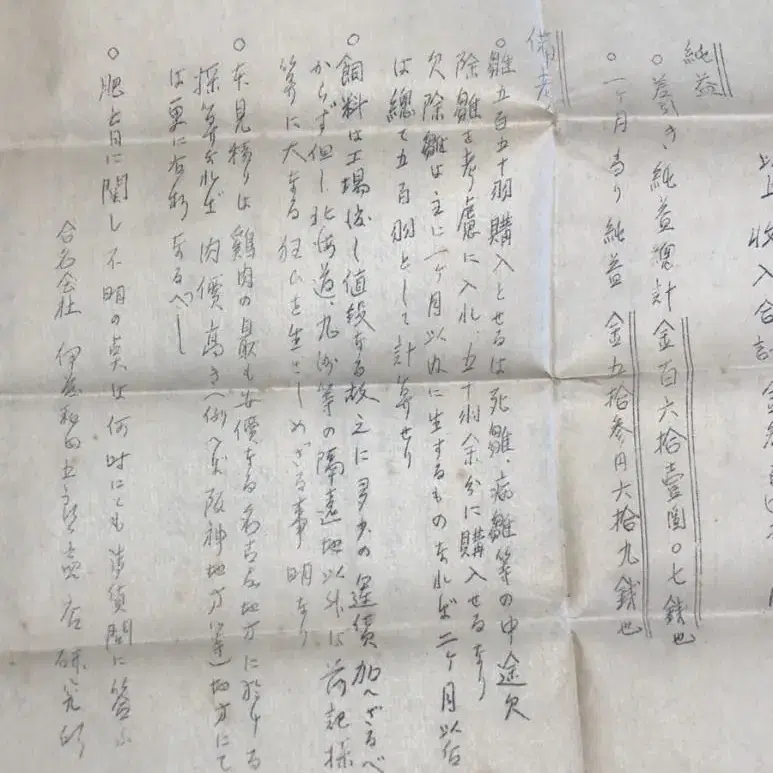 以上収入合計金参
純益
○差引き純益總計金百六拾壹圓○七銭也
○一ケ月当り純益金五拾参円六拾九銭也
備考
○雛五百五十羽購入とせるは死雛、病雛等の中途欠
除雛を考慮に入れ、五十羽余分に購入せるなり
欠除雛は主に一ケ月以内に生するものなれば二ケ月以后
は總て五百羽として計算せり
○飼料は工場渡し値段なる故之に多少の運賃加へざるべ
からず但し北海道、九州等の隔遠地以外は前記採
算に大なる狂ひを生ぜしめざる事明なり
○本見積りは鶏肉の最も安價なる名古屋地方に於ける
採算なれば肉價高き(例へば阪神地方等)地方にて
は更に有利なるべし
○肥育に関し不明の点は何時にても御質問に答ふ
合名会社 店研究部